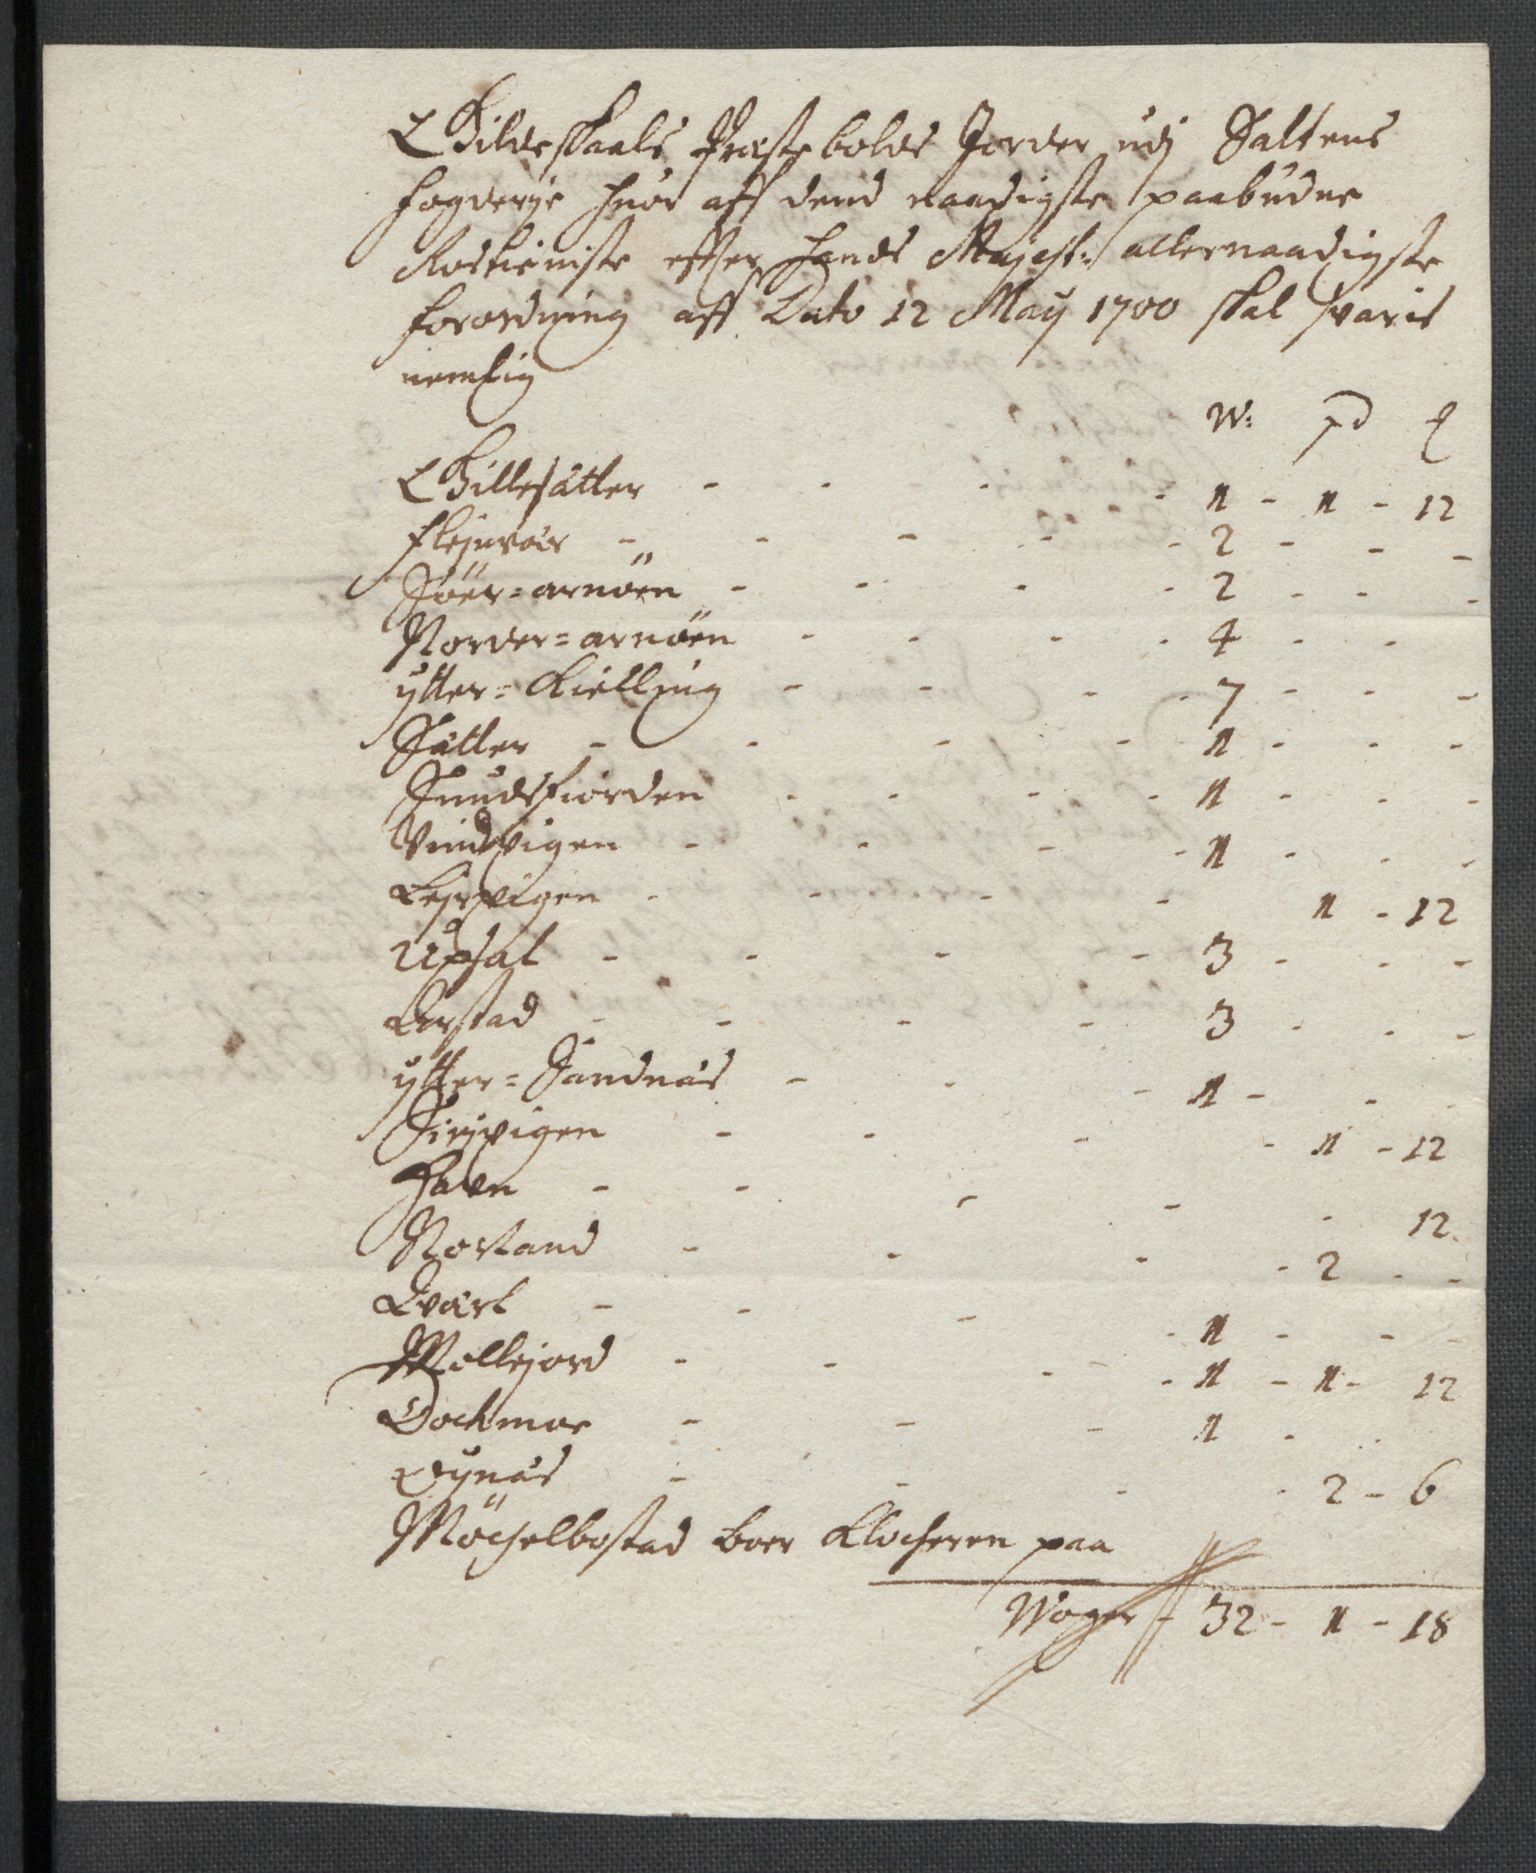 Gildeskaals Præstebolds Jorder udj Saltens
fogderje huor aff dend naadigste paabudne
Rostieniste effter Hands Mayest: allernaadigste
forordning aff Dato 12 May 1700 skal svaris
nemlig
W: pd
Gillesätter - - - - 1 - 1 - 12
flejnvär - - - - - 2 - - -
Söër=arnöen - - - - 2 - - -
Norder=arnöen - - - - 4 - -
ytter=Kielling - - - - 7 - - -
Sätter - - - - 1 - - -
Snudsfiorden - - - - 1 - - -
Vindvigen - - - - 1 - - -
Lejrvigen - - - - 1 - 12
Upsal - - - - 3 - - -
Lerstad - - - - 3 - - -
ytter=Sandnäs - - - 1 - - -
Sirjvigen - - - - 1 - 12
Havn - - - - - 12
Norland - - - - 2 - -
Qvarl - - - - 1 - - -
Mollejord - - - - 1 - 1 - 12
Dockmoe - - - 1 -
Eynäs - - - - 2 - 6
Möchelbostad boer Klocheren paa
Woger - 32 - 1 - 18